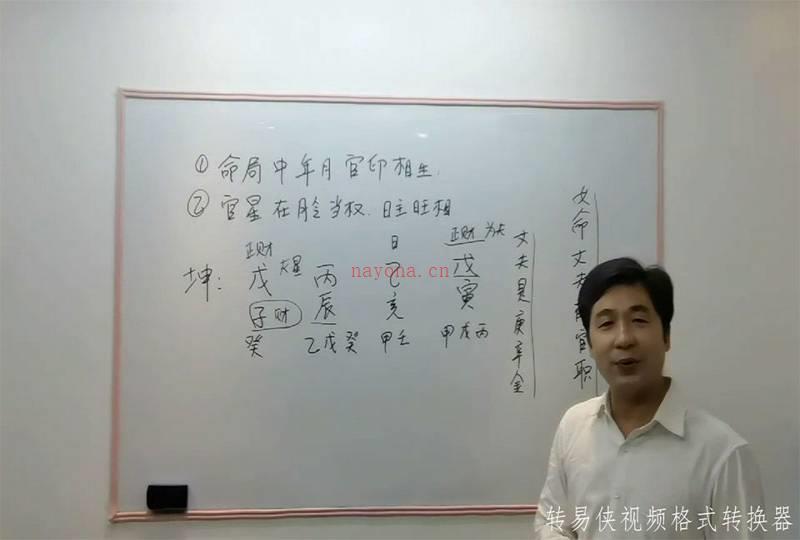 ① 命局中年月官印相生.
② 官星在脸当权.日主旺相
正财 日 正财 为夫
坤: 戊 夫星 丙 乙 戊
子 财 辰 亥 寅
癸 乙戊癸 甲壬 甲戊丙
丈夫是庚辛金
女命丈夫 官职
nayona.cn
转易侠视频格式转换器